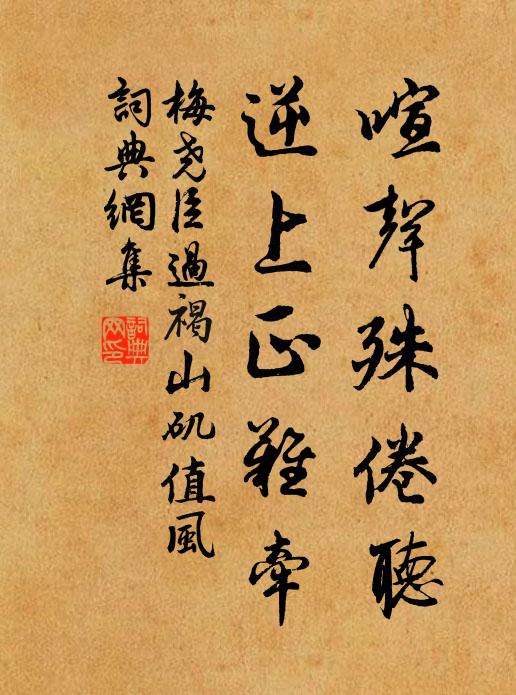 喧聲殊倦聽
逆上正難牽
梅尧臣過褐山矶值風
詞典網集
詞典網印